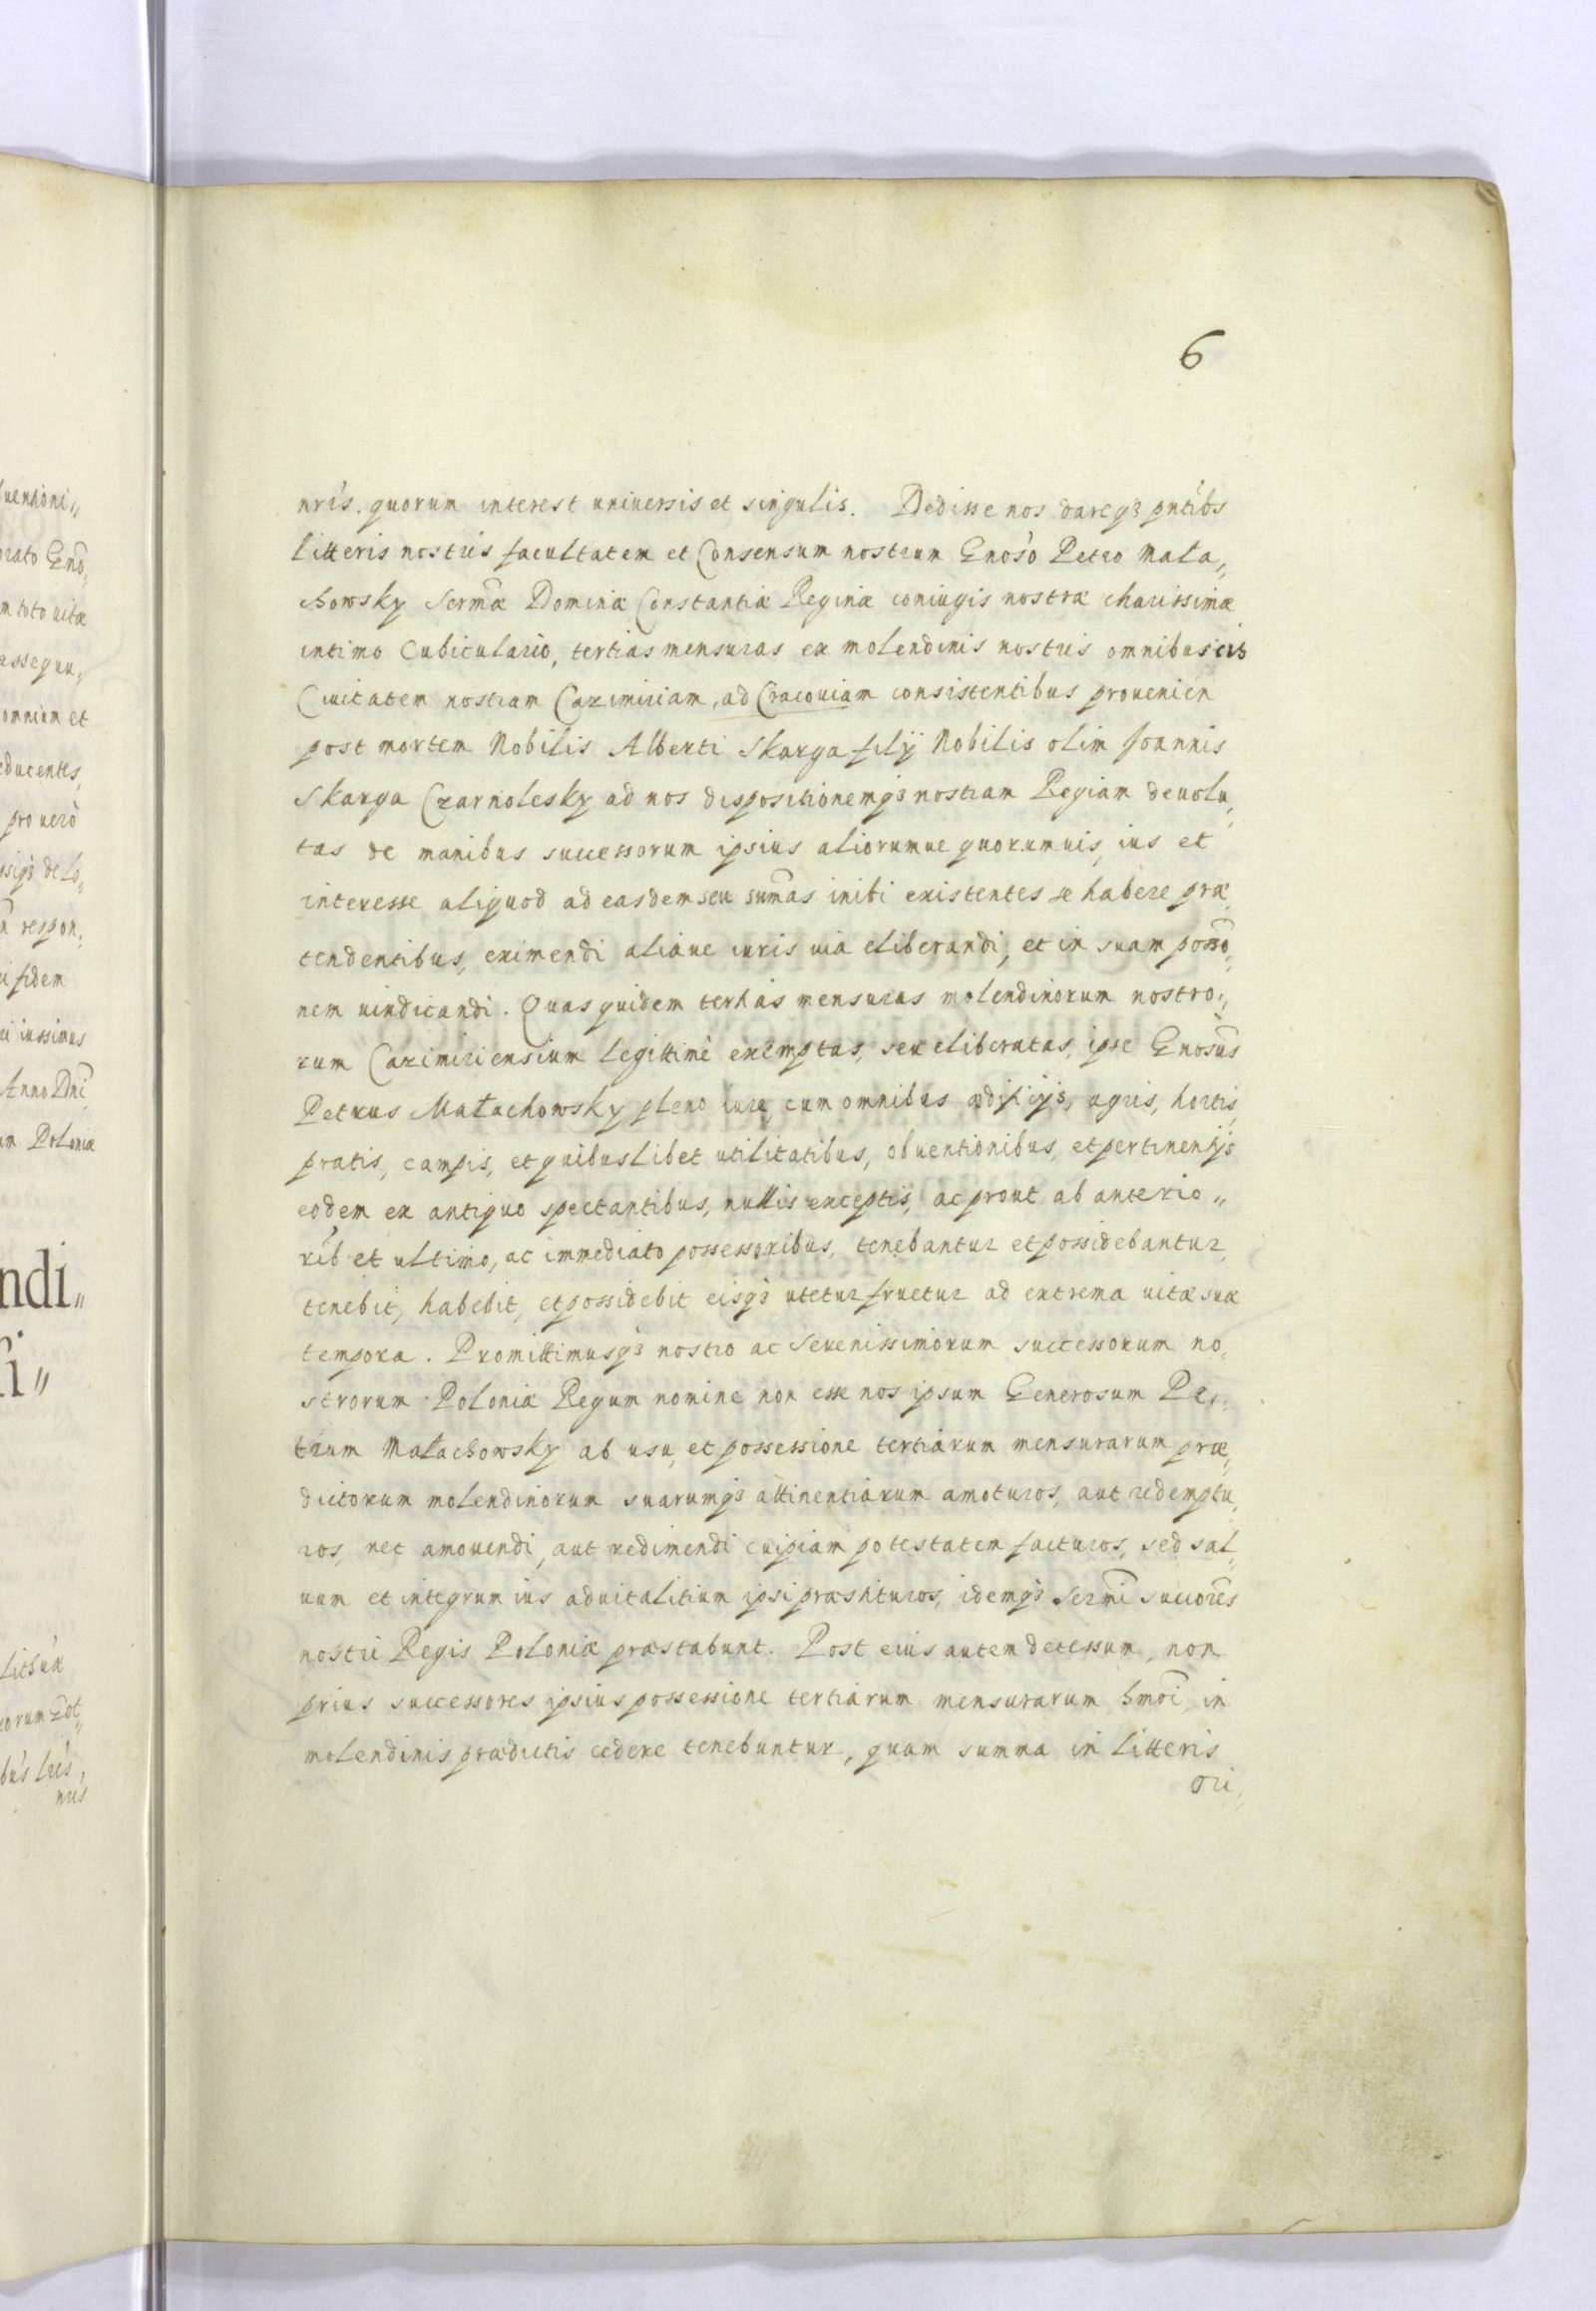 6
nrīs. quorum interest uniuersis et singulis. Dedisse nos dareq3 pñtibs
litteris nostris facultatem et Consensum nostrum Gnoso Petro Mała„
chowsky Sermæ Dominæ Constantiæ Reginæ coniugis nostræ charissimæ
intimo Cubiculario, tertias mensuras ex molendinis nostris omnibus cis
Ciuitatem nostram Cazimiriam, ad Cracouiam consistentibus prouenien
post mortem Nobilis Alberti Skarga filÿ Nobilis olim Joannis
Skarga Czarnolesky ad nos dispositionemq3 nostram Regiam deuolu„
tas de manibus successorum ipsius aliorumue quorumuis, ius et
interesse aliquod ad easdem seu sum̃as inibi existentes se habere præ„
tendentibus, eximendi aliaue iuris uia eliberandi, et in suam possõ„
nem uindicandi. Quas quidem tertias mensuras molendinorum nostro„
rum Cazimiriensium legittimè exemptas, seu eliberatas, ipse Gnosus
Petrus Małachowsky pleno iure, cum omnibus ædificÿs, agris, hortis,
pratis, campis, et quibuslibet utilitatibus, obuentionibus, et pertinentÿs
eodem ex antiquo spectantibus, nullis exceptis, ac prout ab anterio„
rib et ultimo, ac immediato possessoribus, tenebantur et possidebantur,
tenebit, habebit, et possidebit eisq3 utetur fruetur ad extrema uitæ suæ
tempora. Promittimusq3 nostro ac Serenissimorum successorum no„
strorum Poloniæ Regum nomine non esse nos ipsum Generosum Pe„
trum Małachowsky ab usu, et possessione tertiarum mensurarum præ„
dictorum molendinorum suarumq3 attinentiarum amoturos, aut redemptu„
ros, nec amouendi, aut redimendi cuipiam potestatem facturos, sed sal„
uum et integrum ius aduitalitium ipsi præstituros, idemq3 Sermi succōres
nostri Regis Poloniæ præstabunt. Post eius autem decessum, non
prius successores ipsius possessione tertiarum mensurarum hmõi, in
molendinis prædictis cedere tenebuntur, quam summa in litteris
ori„